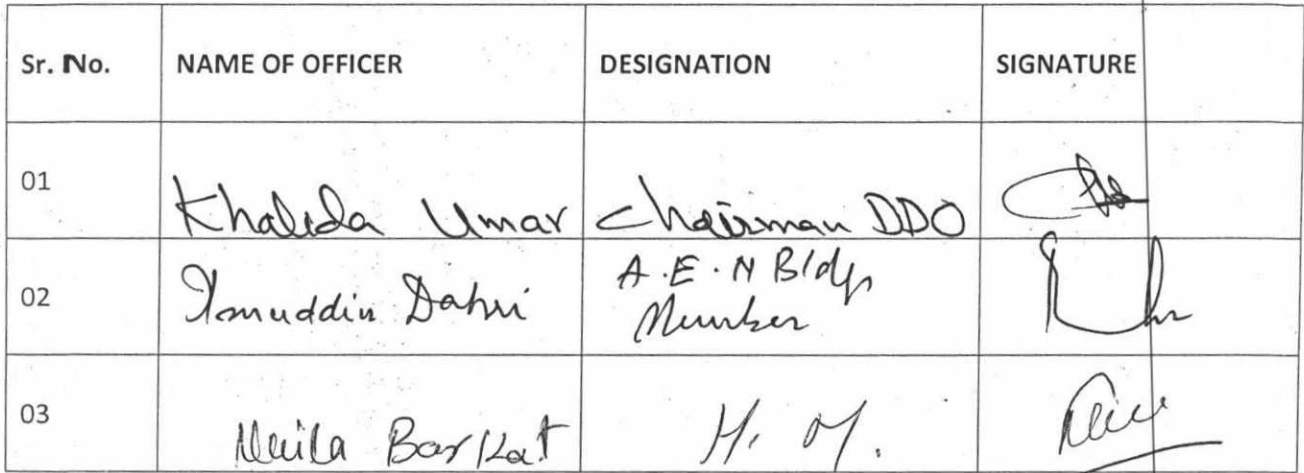 Sr. No. NAME OF OFFICER DESIGNATION SIGNATURE
01 Khalida Umar Chairman DDO
02 Dahri A.E.N Bldg
Member
03 Barkat H. M.